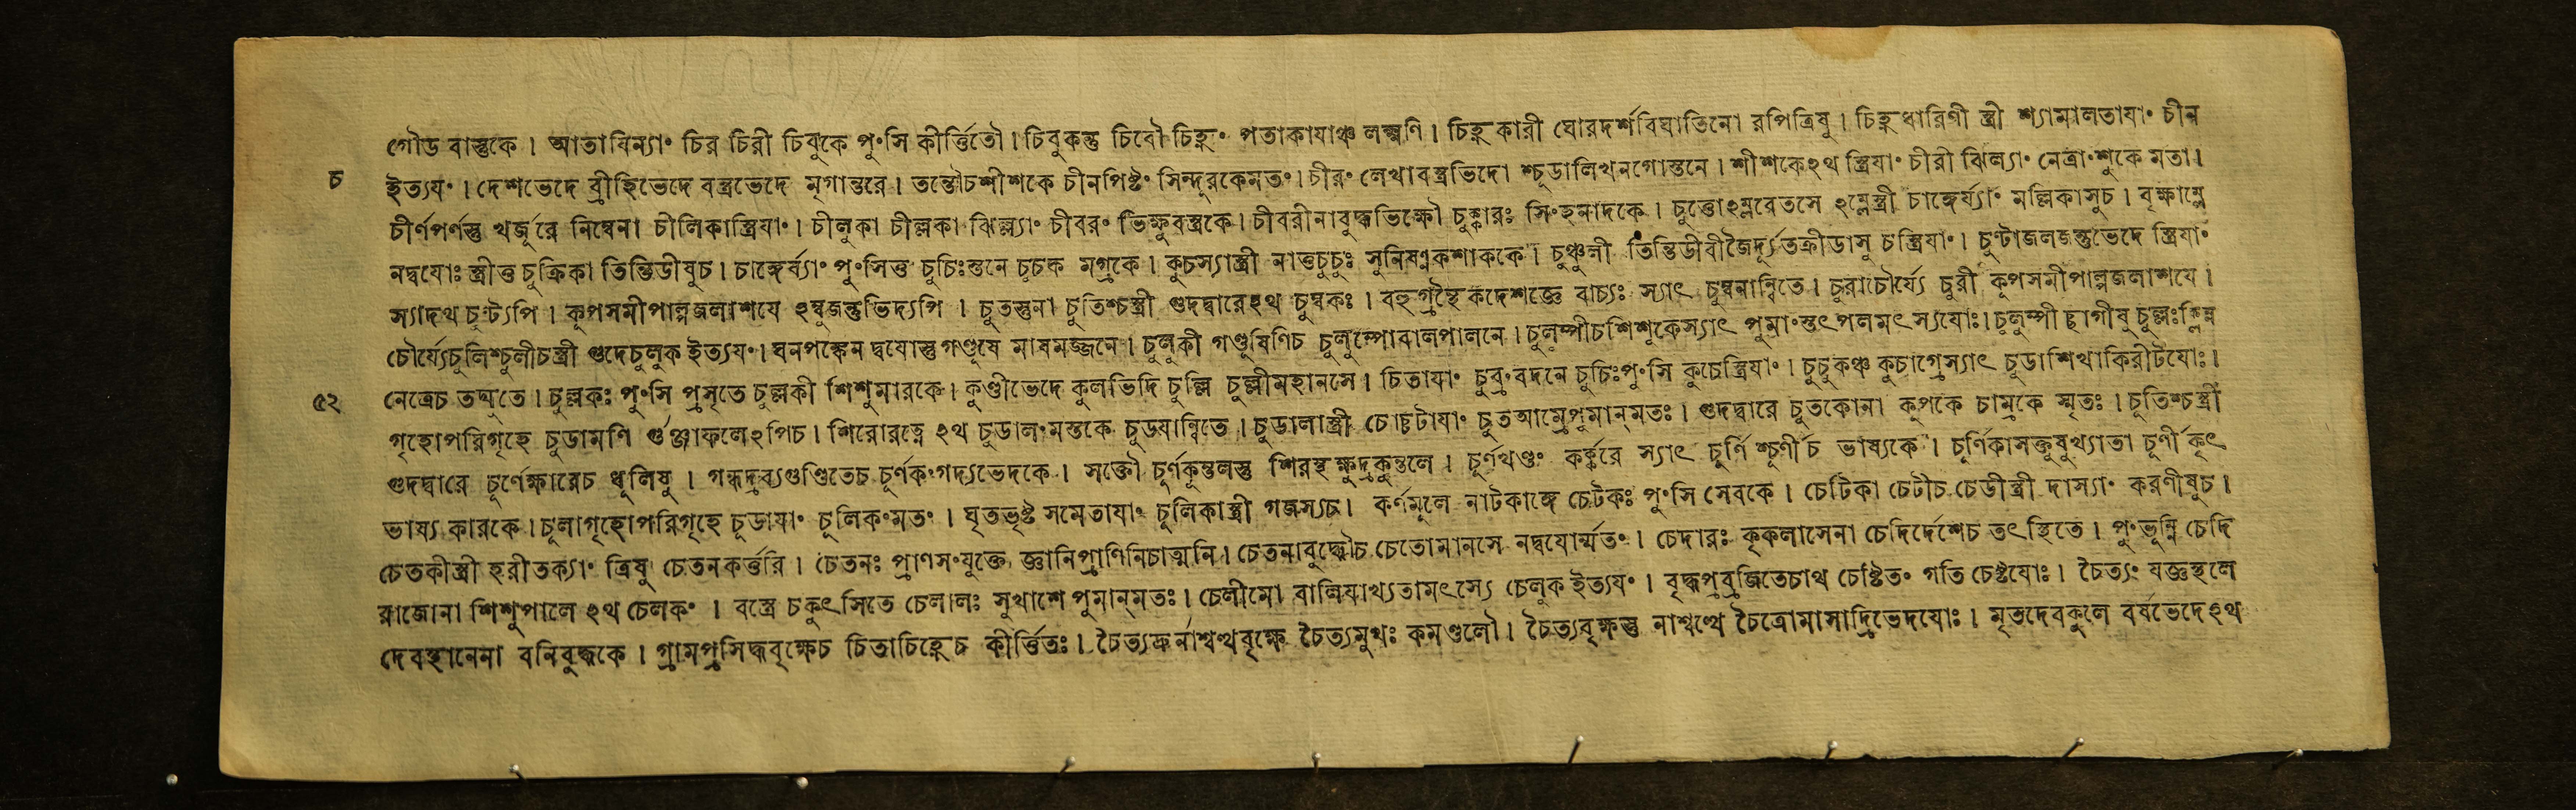 গৌড বাস্তুকে । আতাযিন্যাং চির চিরী চিবুকে পুংসি কীর্ত্তিতৌ । চিবুকন্তু চিবৌ চিহ্নং পতাকাযাঞ্চ লক্ষ্মণি । চিহ্নকারী ঘোরদর্শবিঘাতিনো রপিত্রিষু । চিহ্নধারিণী স্ত্রী শ্যামালতাযাং চীন
চ
ইত্যযং । দেশভেদে ব্রীহিভেদে বস্ত্রভেদে মৃগান্তরে । তন্তৌচশীশকে চীনপিষ্টং সিন্দুরকেমতং । চীরং লেখাবস্ত্রভিদো শ্চূডালিখনগোস্তনে । শীশকেঽথ স্ত্রিযাং চীরী ঝিল্যাং নেত্রাংশুকে মতা ।
চীর্ণপর্ণস্তু খর্জূরে নিম্বেনা চীলিকাস্ত্রিযাং । চীলুকা চীল্লকা ঝিল্ল্যাং চীবরং ভিক্ষুবস্ত্রকে । চীবরীনাবুদ্ধভিক্ষৌ চুক্কারঃ সিংহনাদকে । চুত্তোঽম্লবেতসে ঽম্লেস্ত্রী চাঙ্গের্য্যাং মল্লিকাসুচ । বৃক্ষাম্লে
নদ্বযোঃ স্ত্রীত্ত চুক্রিকা তিন্তিডীষুচ । চাঙ্গের্ব্যাং পুংসিত্ত চুচিঃস্তনে চূচক মগ্রকে । কুচস্যাস্ত্রী নাত্তচুচুঃ সুনিষণ্ণকশাককে । চুঞ্চুলী তিন্তিডীবীজৈর্দ্যূতক্রীডাসু চস্ত্রিযাং । চুণ্টাজলজন্তুভেদে স্ত্রিযাং
স্যাদথ চুণ্ট্যপি । কূপসমীপাল্পজলাশযে ঽম্বুজন্তুভিদ্যপি । চুতস্তুনা চুতিশ্চস্ত্রী গুদদ্বারেঽথ চুম্বকঃ । বহুগ্রন্থৈকদেশজ্ঞে বাচ্যঃ স্যাৎ চুম্বনান্বিতে । চুরাচৌর্য্যে চুরী কূপসমীপাল্পজলাশযে ।
চৌর্য্যেচুলিশ্চুলীচস্ত্রী গুদেচুলুক ইত্যযং । ঘনপঙ্কেন দ্বযোস্তু গণ্ডূষে মাষমজ্জনে । চুলুকী গণ্ডূষিণিচ চুলুম্পোবালপালনে । চুলুম্পীচশিশূকেস্যাৎ পুমাংস্তৎপলমৎস্যযোঃ । চুলুম্পী ছাগীষু চুল্লঃক্লিন্ন
৫২
নেত্রেচ তদ্যুতে । চুল্লকঃ পুংসি প্রসৃতে চুল্লকী শিশুমারকে । কুণ্ডীভেদে কুলভিদি চুল্লি চুল্লীমহানসে । চিতাযাং চুব্রংবদনে চুচিঃপুংসি কুচেস্ত্রিযাং । চুচুকঞ্চ কুচাগ্রেস্যাৎ চূডাশিখাকিরীটযোঃ ।
গৃহোপরিগৃহে চূডামণি র্গুঞ্জাফলেঽপিচ । শিরোরত্নে ঽথ চূডালংমস্তকে চূডযান্বিতে । চূডালাস্ত্রী চোচ্চটাযাং চূতআম্রেপুমান্‌মতঃ । গুদদ্বারে চূতকোনা কূপকে চাম্রকে স্মৃতঃ । চূতিশ্চস্ত্রী
গুদদ্বারে চূর্ণেক্ষারেচ ধূলিষু । গন্ধদ্রব্যগুণ্ডিতেচ চূর্ণকংগদ্যভেদকে । সক্তৌ চূর্ণকুন্তলস্তু শিরস্থক্ষুদ্রকুন্তলে । চূর্ণখণ্ডং কর্ক্করে স্যাৎ চূর্ণি শ্চূর্ণীচ ভাষ্যকে । চূর্ণিকাসক্তুষুখ্যাতা চূর্ণীকৃৎ
ভাষ্য কারকে । চূলাগৃহোপরিগৃহে চূডাযাং চূলিকংমতং । ঘৃতভৃষ্ট সমেতাযাং চূলিকাস্ত্রী গজস্যচ । কর্ণমূলে নাটকাঙ্গে চেটকঃ পুংসি সেবকে । চেটিকা চেটীচ চেডীস্ত্রী দাস্যাং করণীষুচ ।
চেতকীস্ত্রী হরীতক্যাং ত্রিষু চেতনকর্ত্তরি । চেতনঃ প্রাণসংযুক্তে জ্ঞানিপ্রাণিনিচাত্মনি । চেতনাবুদ্ধৌচ চেতোমানসে নদ্বযোর্ম্মতং । চেদারঃ কৃকলাসেনা চেদির্দেশেচ তৎস্থিতে । পুংভূম্নি চেদি
রাজোনা শিশুপালে ঽথ চেলকং । বস্ত্রে চকুৎসিতে চেলালঃ সুখাশে পুমান্‌মতঃ । চেলীমো বালিষাখ্যতামৎস্যে চেলুক ইত্যযং । বৃদ্ধপ্রব্রজিতেচাথ চেষ্টিতং গতি চেষ্টযোঃ । চৈত্যং যজ্ঞস্থলে
দেবস্থানেনা বনিবুদ্ধকে । গ্রামপ্রসিদ্ধবৃক্ষেচ চিতাচিহ্নেচ কীর্ত্তিতঃ । চৈত্যদ্রুর্নাশ্বত্থবৃক্ষে চৈত্যমুখঃ কমণ্ডলৌ । চৈত্যবৃক্ষস্তু নাশ্বত্থে চৈত্রোমাসাদ্রিভেদযোঃ । মৃতদেবকুলে বর্ষভেদেঽথ